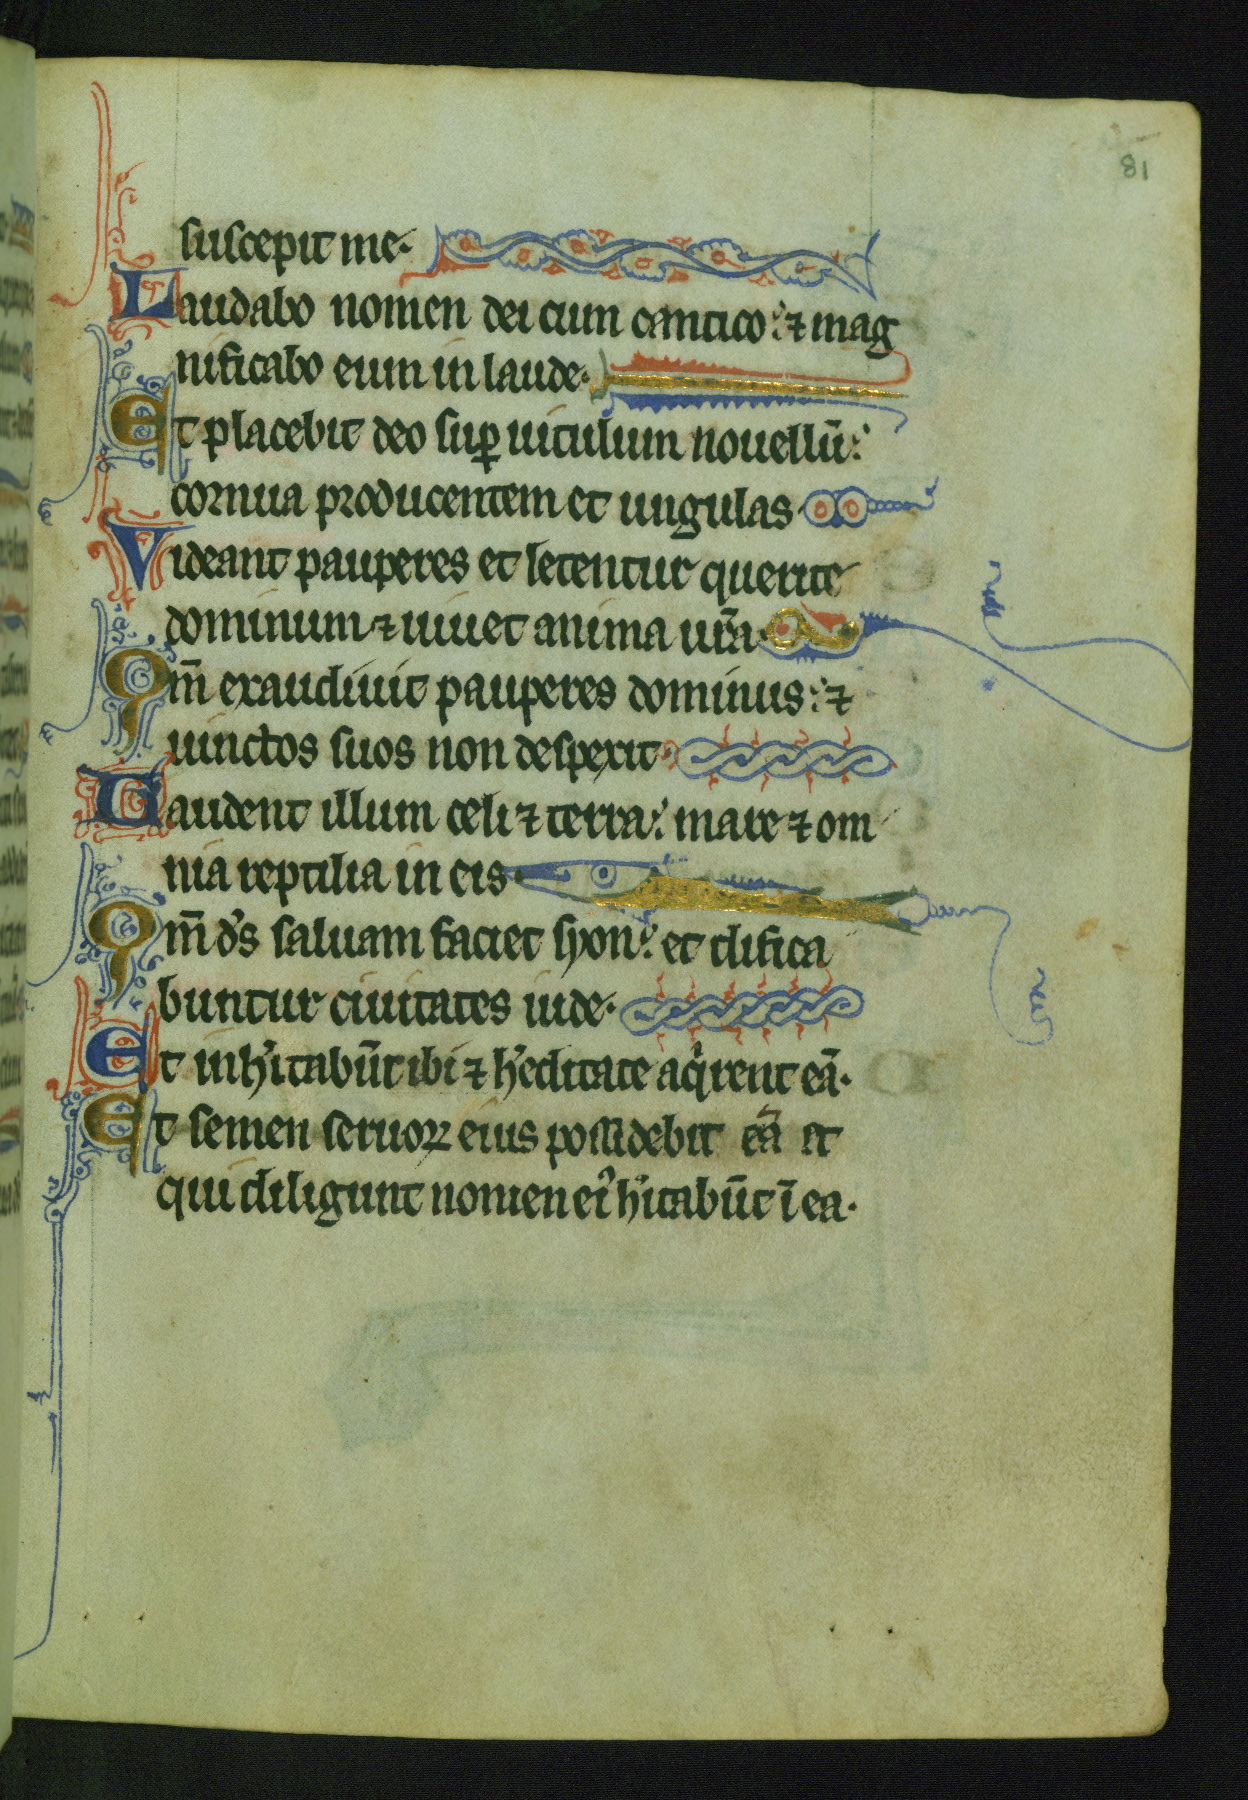 81
suscepit me.
Laudabo nomen dei cum cantico: ⁊ mag
nificabo eum in laude.
Et placebit deo suꝑ uitulum nouellū:
cornua producentem et ungulas
Videant pauperes et letentur querite
dominum ⁊ uiuet anima ur̄a.
Qm̄ exaudiuit pauperes dominus: ⁊
uinctos suos non despexit.
Laudent illum celi ⁊ terra: mare ⁊ om
nia reptilia in eis.
Qm̄ d's saluam faciet syon: et edifica
buntur ciuitates iude.
Et inh'itabūt ibi ⁊ h'editate aq̇rent eā.
Et semen seruoꝝ eius possidebit eā et
qui diligunt nomen ei' h'itabūt ī ea.